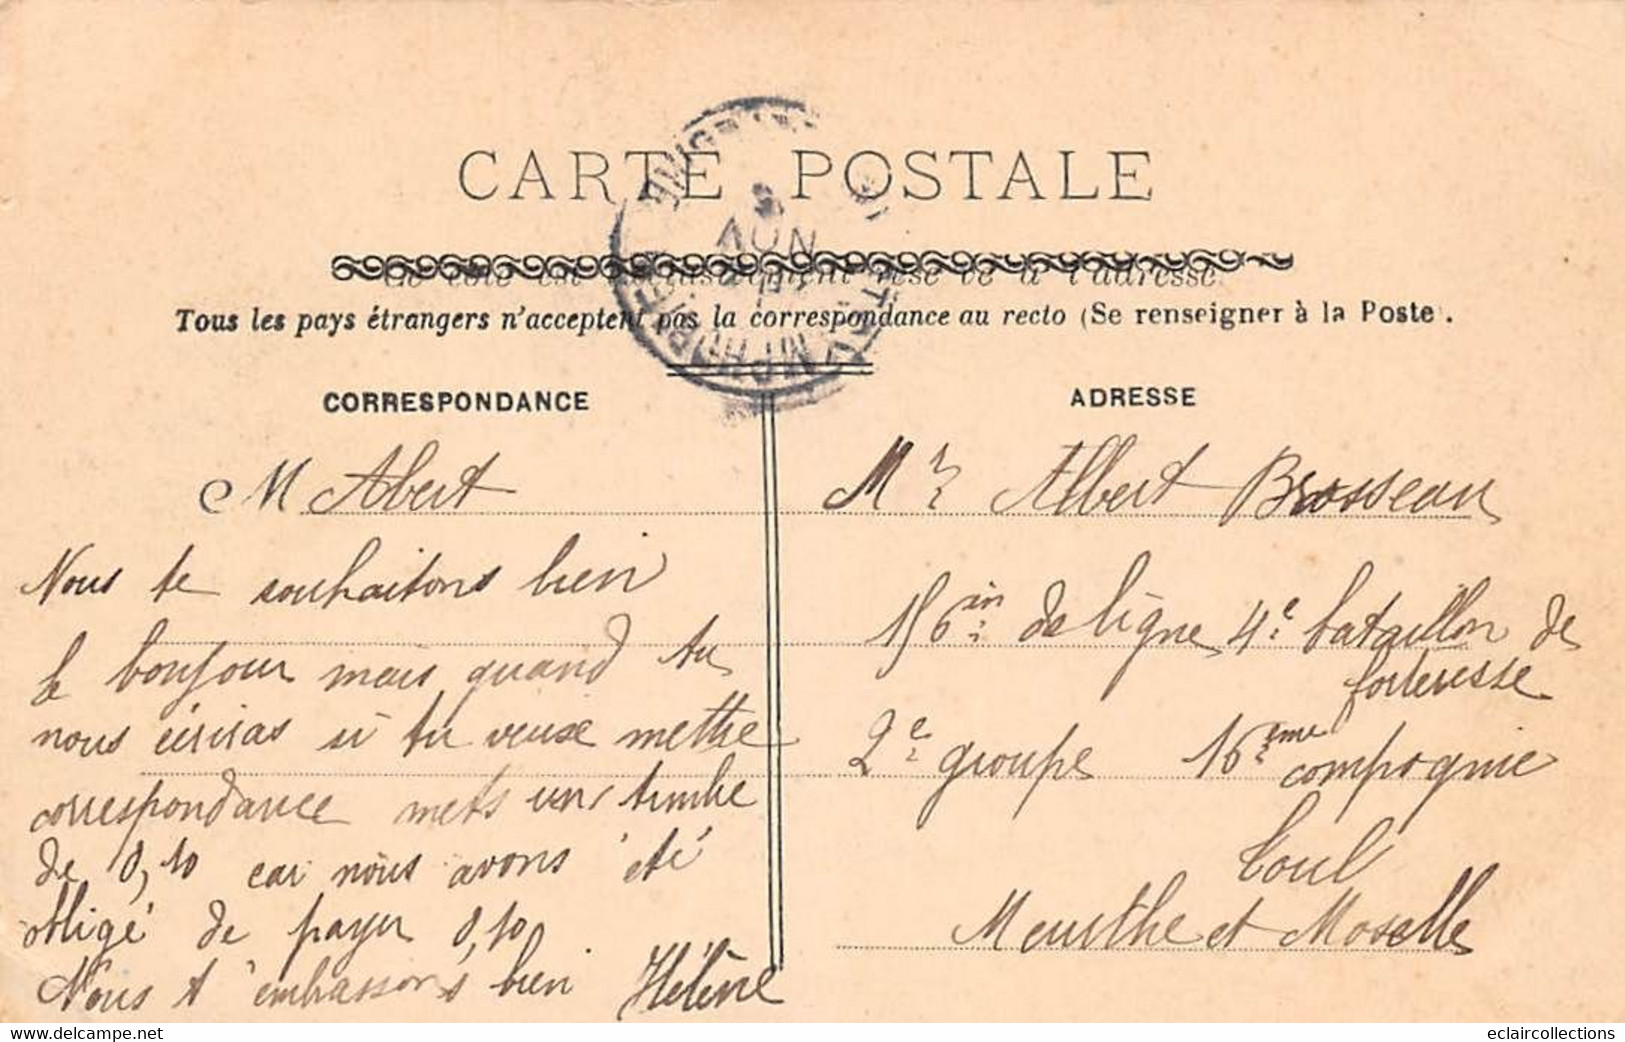 CARTE POSTALE
Ce côté est exclusivement réservé à l'adresse
Tous les pays étrangers n'acceptent pas la correspondance au recto (Se renseigner à la Poste).
NOV
CORRESPONDANCE
M Abert
Nous te souhaitons bien
le bonjour mais quand tu
nous écriras si tu veuse mettre
correspondance mets un timbre
de 0,10 car nous avons été
obligé de payer 0,10
Nous t'embassons bien Hélène
ADRESSE
Mr Albert Brosseau
156in de ligne 4e bataillon de
forteresse
2e groupe 16eme compagnie
Toul
Meurthe et Moselle
eclaircollections